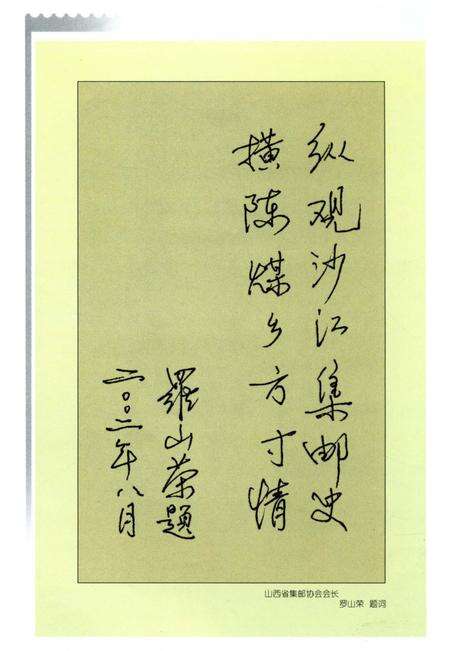 纵观沙江集邮史
横陈煤乡方寸情
羅山荣题
二〇〇二年八月
山西省集邮协会会长
罗山荣 题词